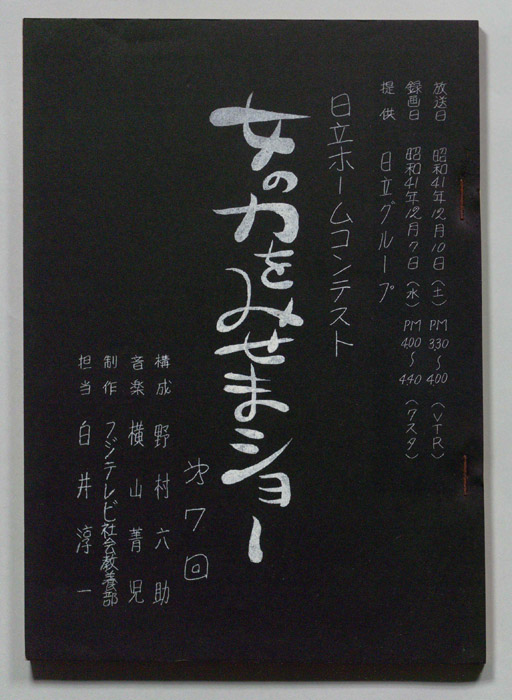 放送日 昭和41年12月10日（土）PM 330～400（VTR）
録画日 昭和41年12月7日（水）PM 400～440（7スタ）
提供 日立グループ
日立ホームコンテスト
女の力をみせまショー
第7回
構成 野村六助
音楽 横山菁児
制作 フジテレビ社会教養部
担当 白井淳一